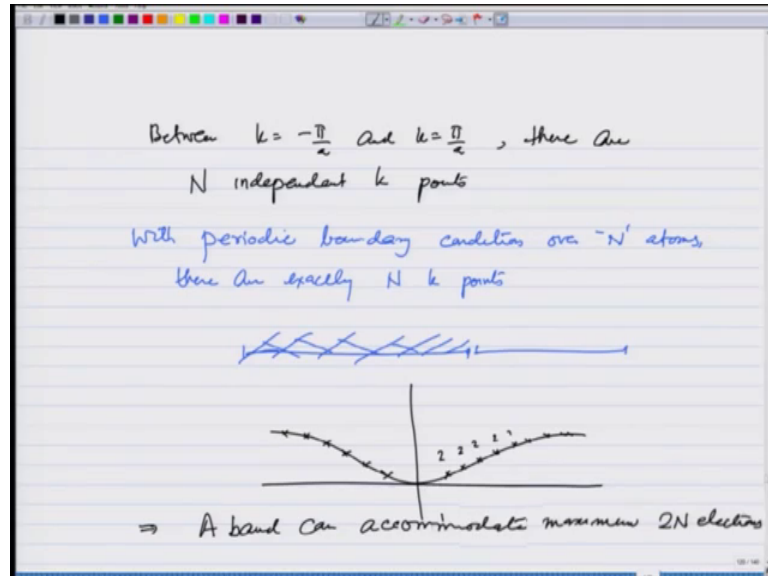 Between k = -π/a and k = π/a , there are
N independent k points
With periodic boundary condition over 'N' atoms,
there are exactly N k points
2 2 2 2
⇒ A band can accommodate maximum 2N electrons